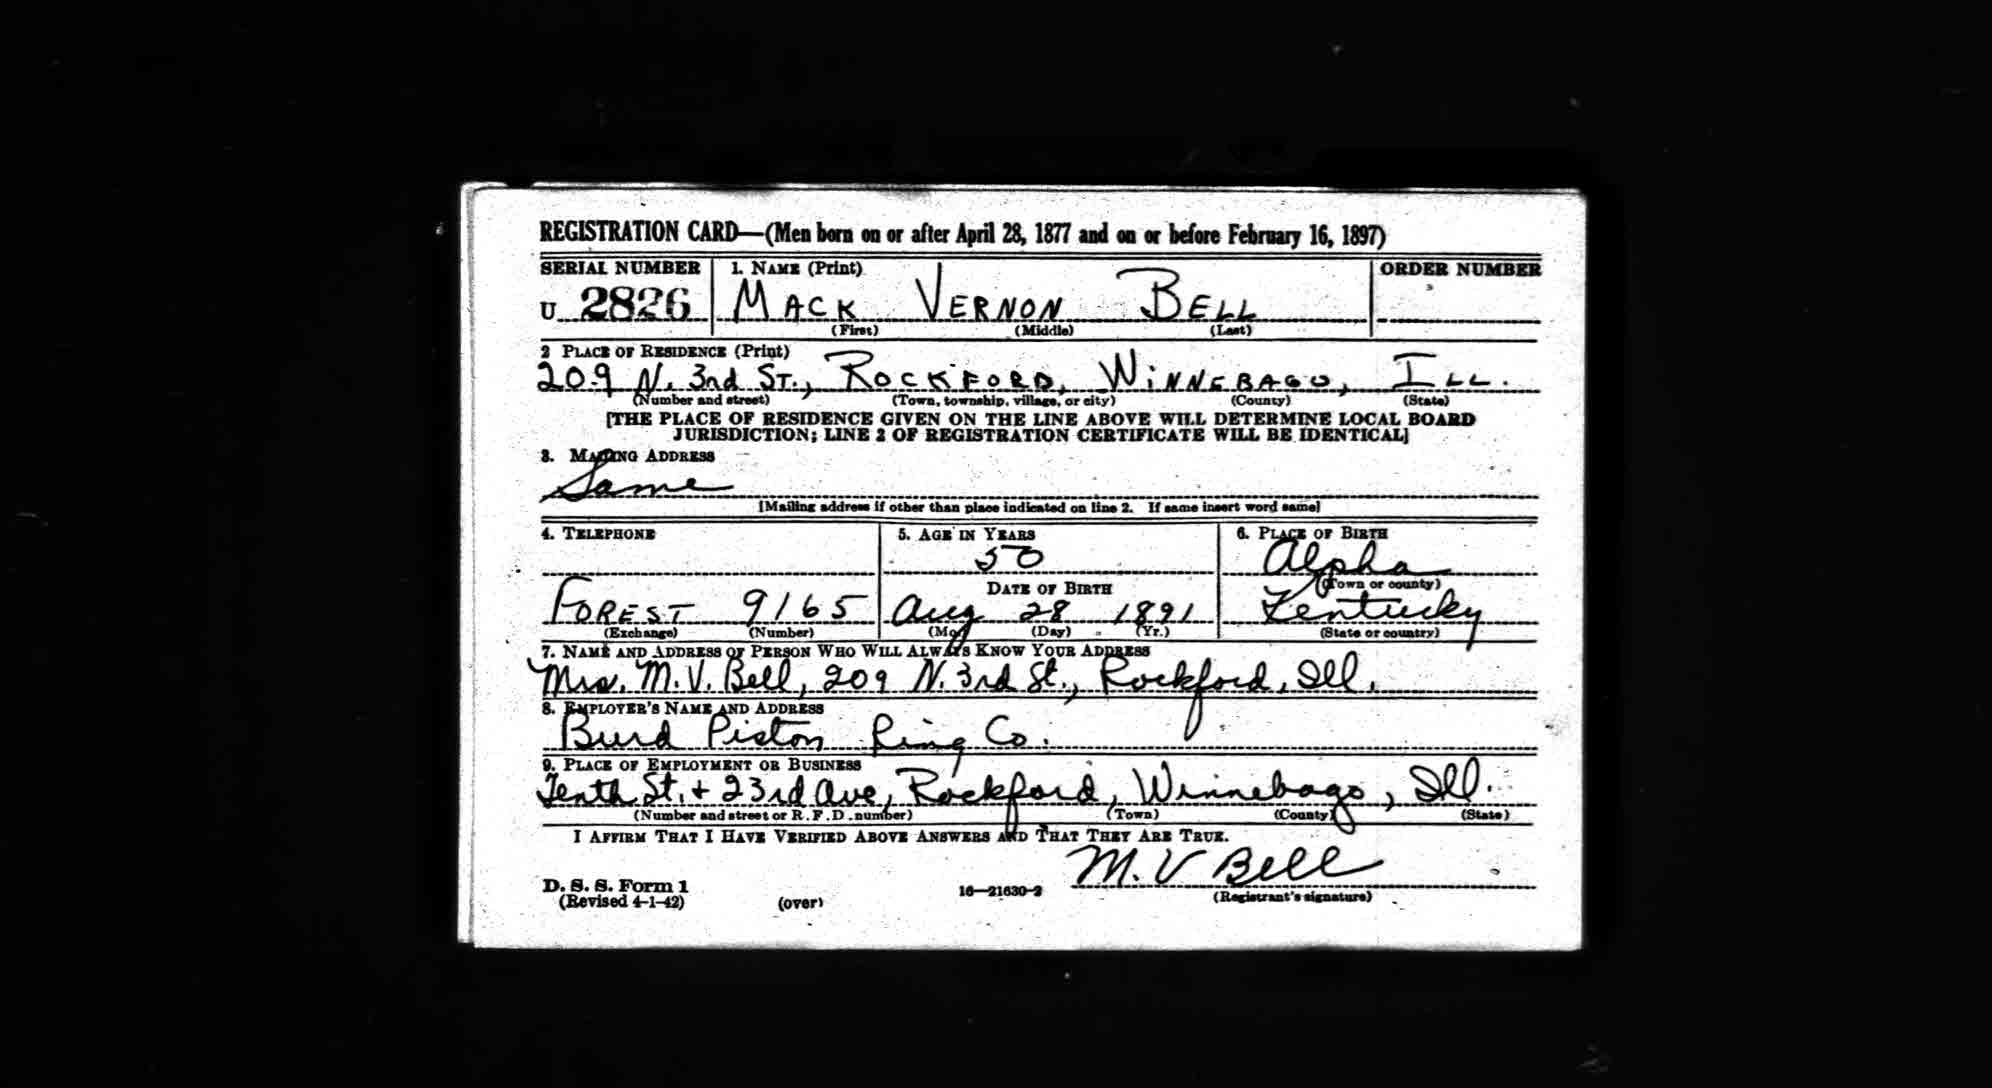 REGISTRATION CARD—(Men born on or after April 28, 1877 and on or before February 16, 1897)
SERIAL NUMBER 1. NAME (Print) ORDER NUMBER
U 2826 MACK VERNON BELL
(First) (Middle) (Last)
2 PLACE OF RESIDENCE (Print)
209 N. 3rd ST., ROCKFORD, WINNEBAGO, ILL.
(Number and street) (Town, township, village, or city) (County) (State)
[THE PLACE OF RESIDENCE GIVEN ON THE LINE ABOVE WILL DETERMINE LOCAL BOARD
JURISDICTION; LINE 2 OF REGISTRATION CERTIFICATE WILL BE IDENTICAL]
3. MAILING ADDRESS
Same
[Mailing address if other than place indicated on line 2. If same insert word same]
4. TELEPHONE 5. AGE IN YEARS 6. PLACE OF BIRTH
50 Alpha
DATE OF BIRTH (Town or county)
FOREST 9165 Aug 28 1891 Kentucky
(Exchange) (Number) (Mo.) (Day) (Yr.) (State or country)
7. NAME AND ADDRESS OF PERSON WHO WILL ALWAYS KNOW YOUR ADDRESS
Mrs. M. V. Bell, 209 N. 3rd St., Rockford, Ill.
8. EMPLOYER'S NAME AND ADDRESS
Burd Piston Ring Co.
9. PLACE OF EMPLOYMENT OR BUSINESS
Tenth St. + 23rd Ave, Rockford, Winnebago, Ill.
(Number and street or R. F. D. number) (Town) (County) (State)
I AFFIRM THAT I HAVE VERIFIED ABOVE ANSWERS AND THAT THEY ARE TRUE.
M. V Bell
D. S. S. Form 1
(Revised 4-1-42) (over) 16—21630-2 (Registrant's signature)